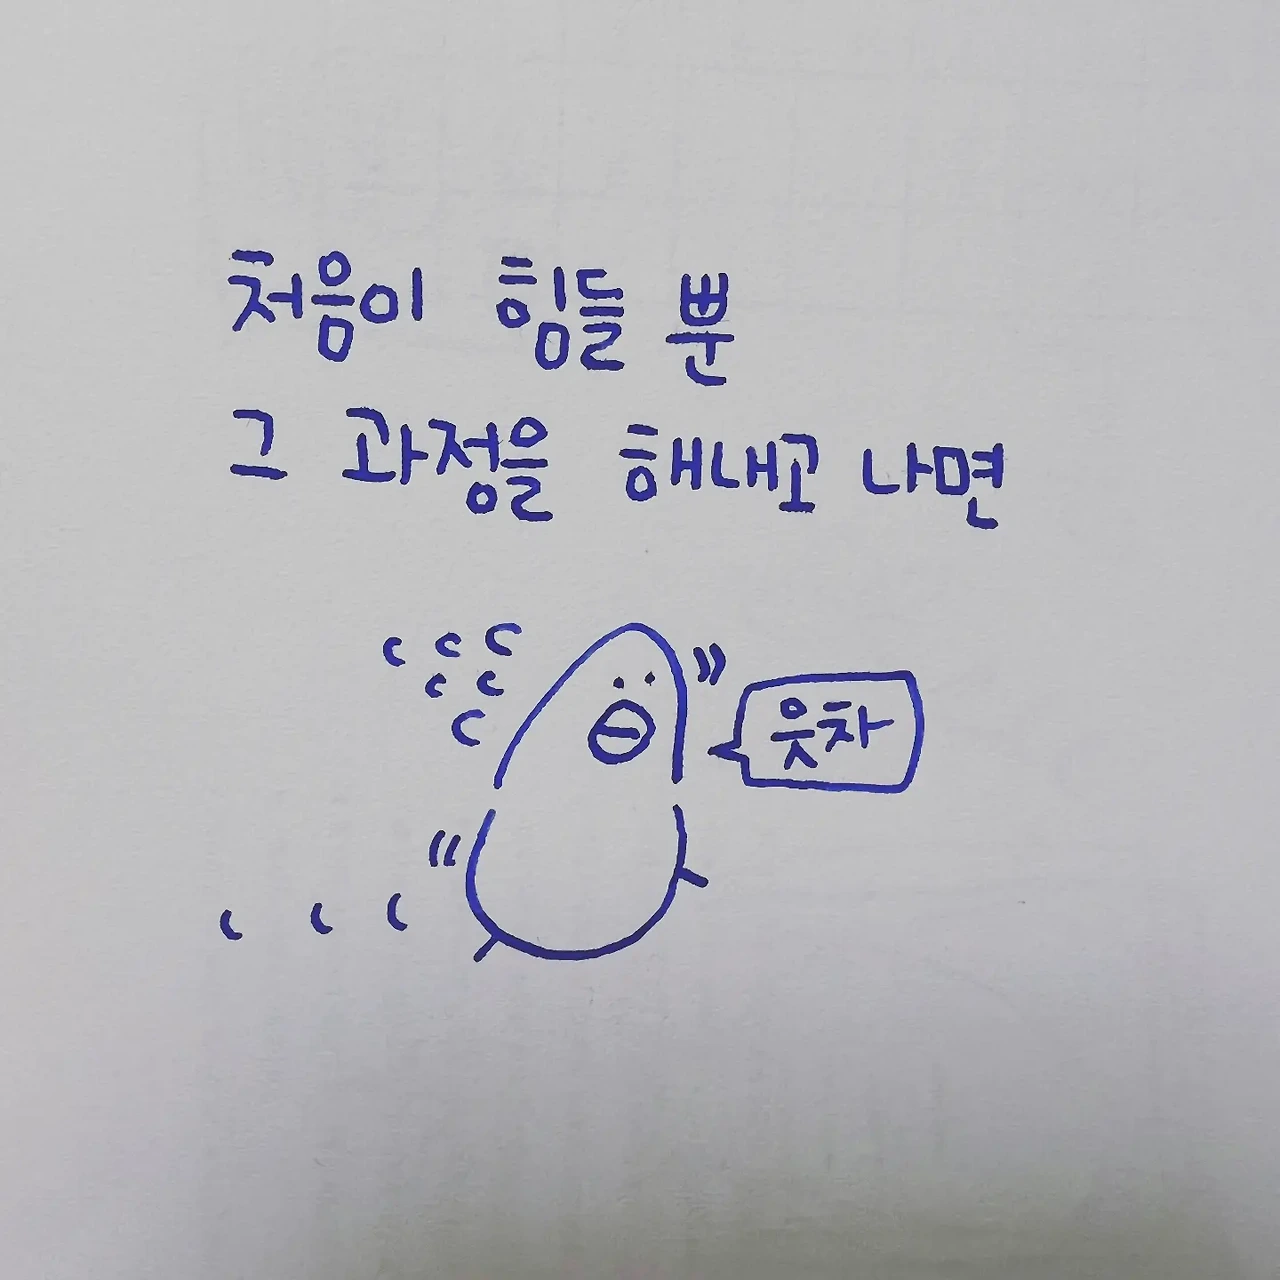 처음이 힘들 뿐
그 과정을 해내고 나면
읏차